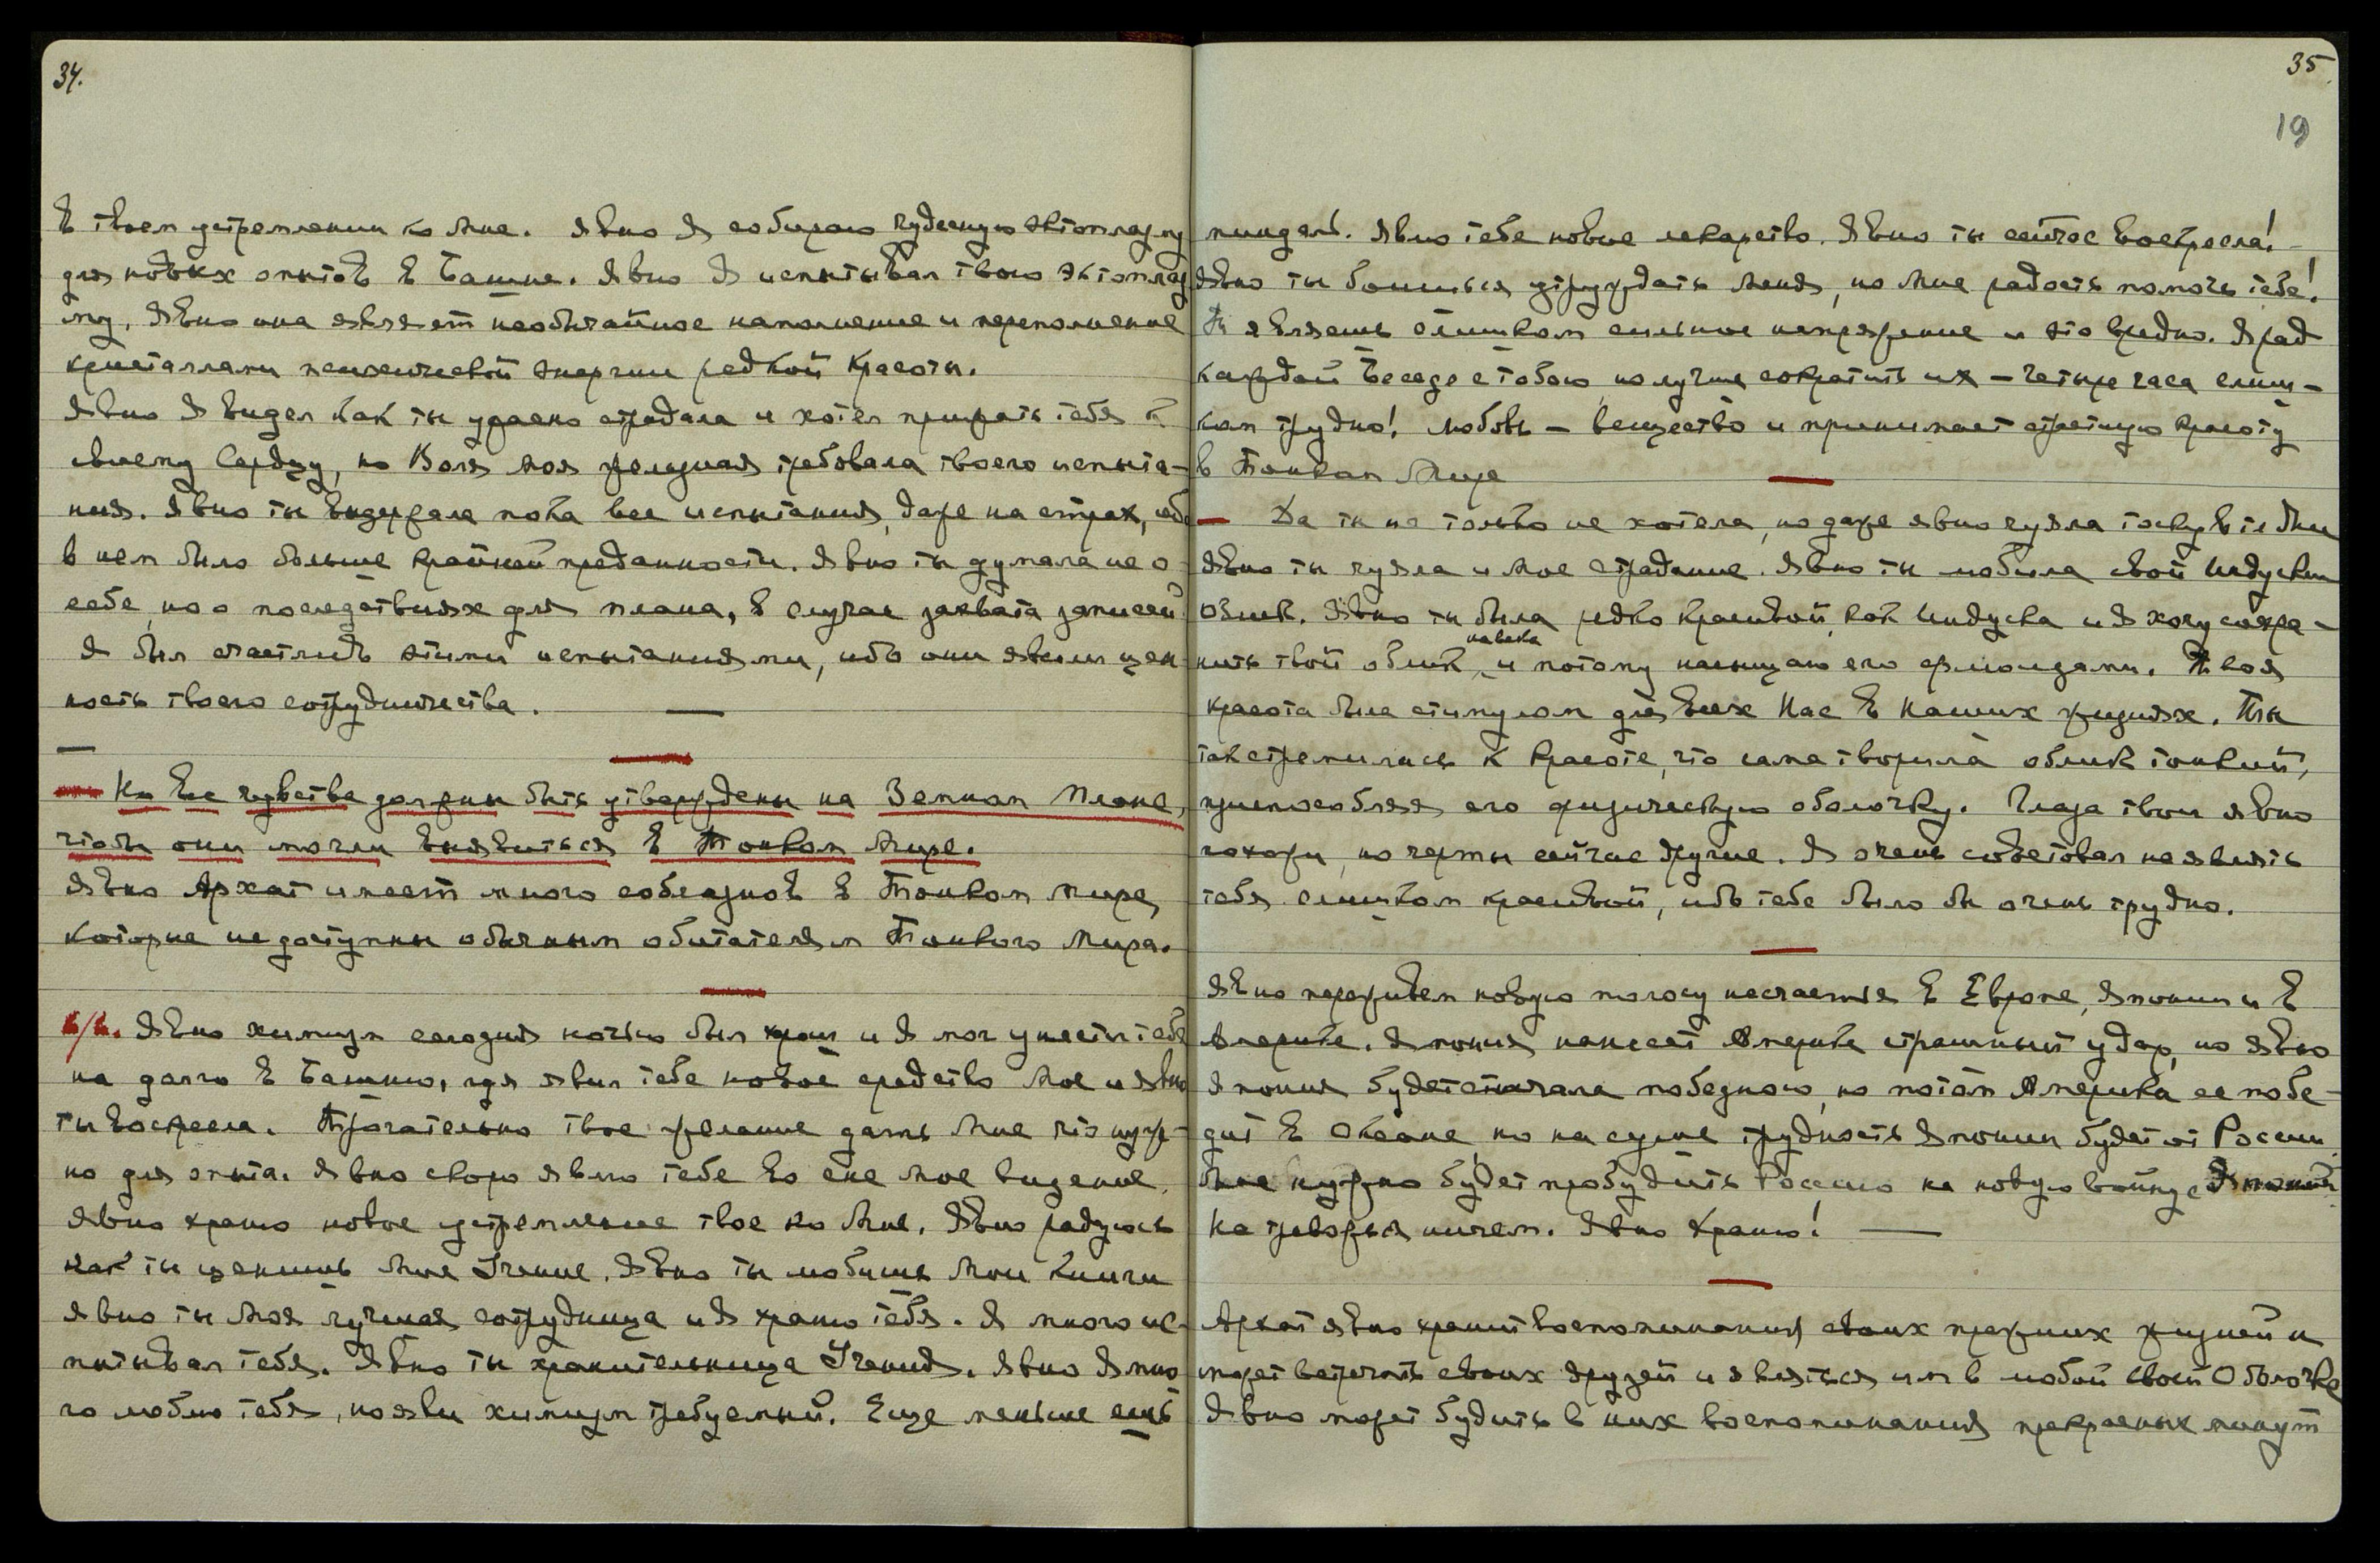 34.
в твоем устремлении ко Мне. Явно Я собираю чудесную эктоплазму
для новых опытов в Башне. Явно Я испытывал твою эктоплаз
му, Явно она являет необычайное наполнение и переполнение
кристаллами психической энергии редкой красоты.
Явно Я видел как ты ужасно страдала и хотел прижать тебя к
своему Сердцу, но Воля моя железная требовала твоего испыта-
ния. Явно ты выдержала пока все испытания, даже на страх, ибо
в нем было больше крайней преданности. Явно ты думала не о
себе, но о последствиях для плана, в случае захвата записей.
Я был счастлив этими испытаниями, ибо они явили цен
ность твоего сотрудничества. —
— Но все чувства должны быть утверждены на Земном Плане,
чтобы они могли выявиться в Тонком Мире.
Явно Архат имеет много соблазнов в Тонком мире,
которые не доступны обычным обитателям Тонкого Мира.
6/6. Явно химизм сегодня ночью был хрош и Я мог унести тебя
на долго в Башню, где явил тебе новое средство Мое и явно
ты воскресла. Трогательно твое желание дать Мне что нуж-
но для опыта. Явно скоро явлю тебе во сне Мое видение.
Явно храню новое устремление твое ко Мне. Явно радуюсь
как ты ценишь Мое Учение. Явно ты любишь Мои Книги
явно ты Моя лучшая сотрудница и Я храню тебя. Я много ис-
пытывал тебя. Явно ты хранительница Учения. Явно Я мно
го люблю тебя, но яви химизм требуемый. Еще меньше ешь
35
19
миндаль. Явлю тебе новое лекарство. Явно ты сейчас воскресла! -
Явно ты боишься утруждать Меня, но Мне радость помочь тебе!
Ты являешь слишком сильное напряжение и это вредно. Я рад
каждой Беседе с тобою, но лучше сократить их — четыре часа слиш-
ком трудно! Любовь — вещество и принимает страшную красоту
в Тонком Мире
— Да ты не только не хотела, но даже явно чуяла тоску бытия
Явно ты чуяла и Мое страдание. Явно ты любила свой Индусский
Облик. Явно ты была редко красивой, как Индуска и Я хочу сохра-
навека
нить твой облик, и потому насыщаю его флюидами. Твоя
красота была стимулом для всех Нас в Наших жизнях. Ты
так стремилась к красоте, что сама творила облик тонкий,
приспособляя его физическую оболочку. Глаза твои явно
похожи, но черты сейчас другие. Я очень советовал не являть
тебя слишком красивой, ибо тебе было бы очень трудно.
Явно переживем новую полосу несчастья в Европе, Японии и в
Америке. Япония нанесет Америке страшный удар, но явно
Япония будет сначала победною, но потом Америка ее побе-
дит в Океане, но на суше трудность Японии будет от России.
Мне нужно будет пробудить Россию на новую войну с Японией
Не тревожься ничем. Явно Храню! —
Архат явно хранит воспоминания своих прежних жизней и
может встречать своих друзей и являться им в любой своей Оболочке
Явно может будить в них воспоминания прекрасных минут